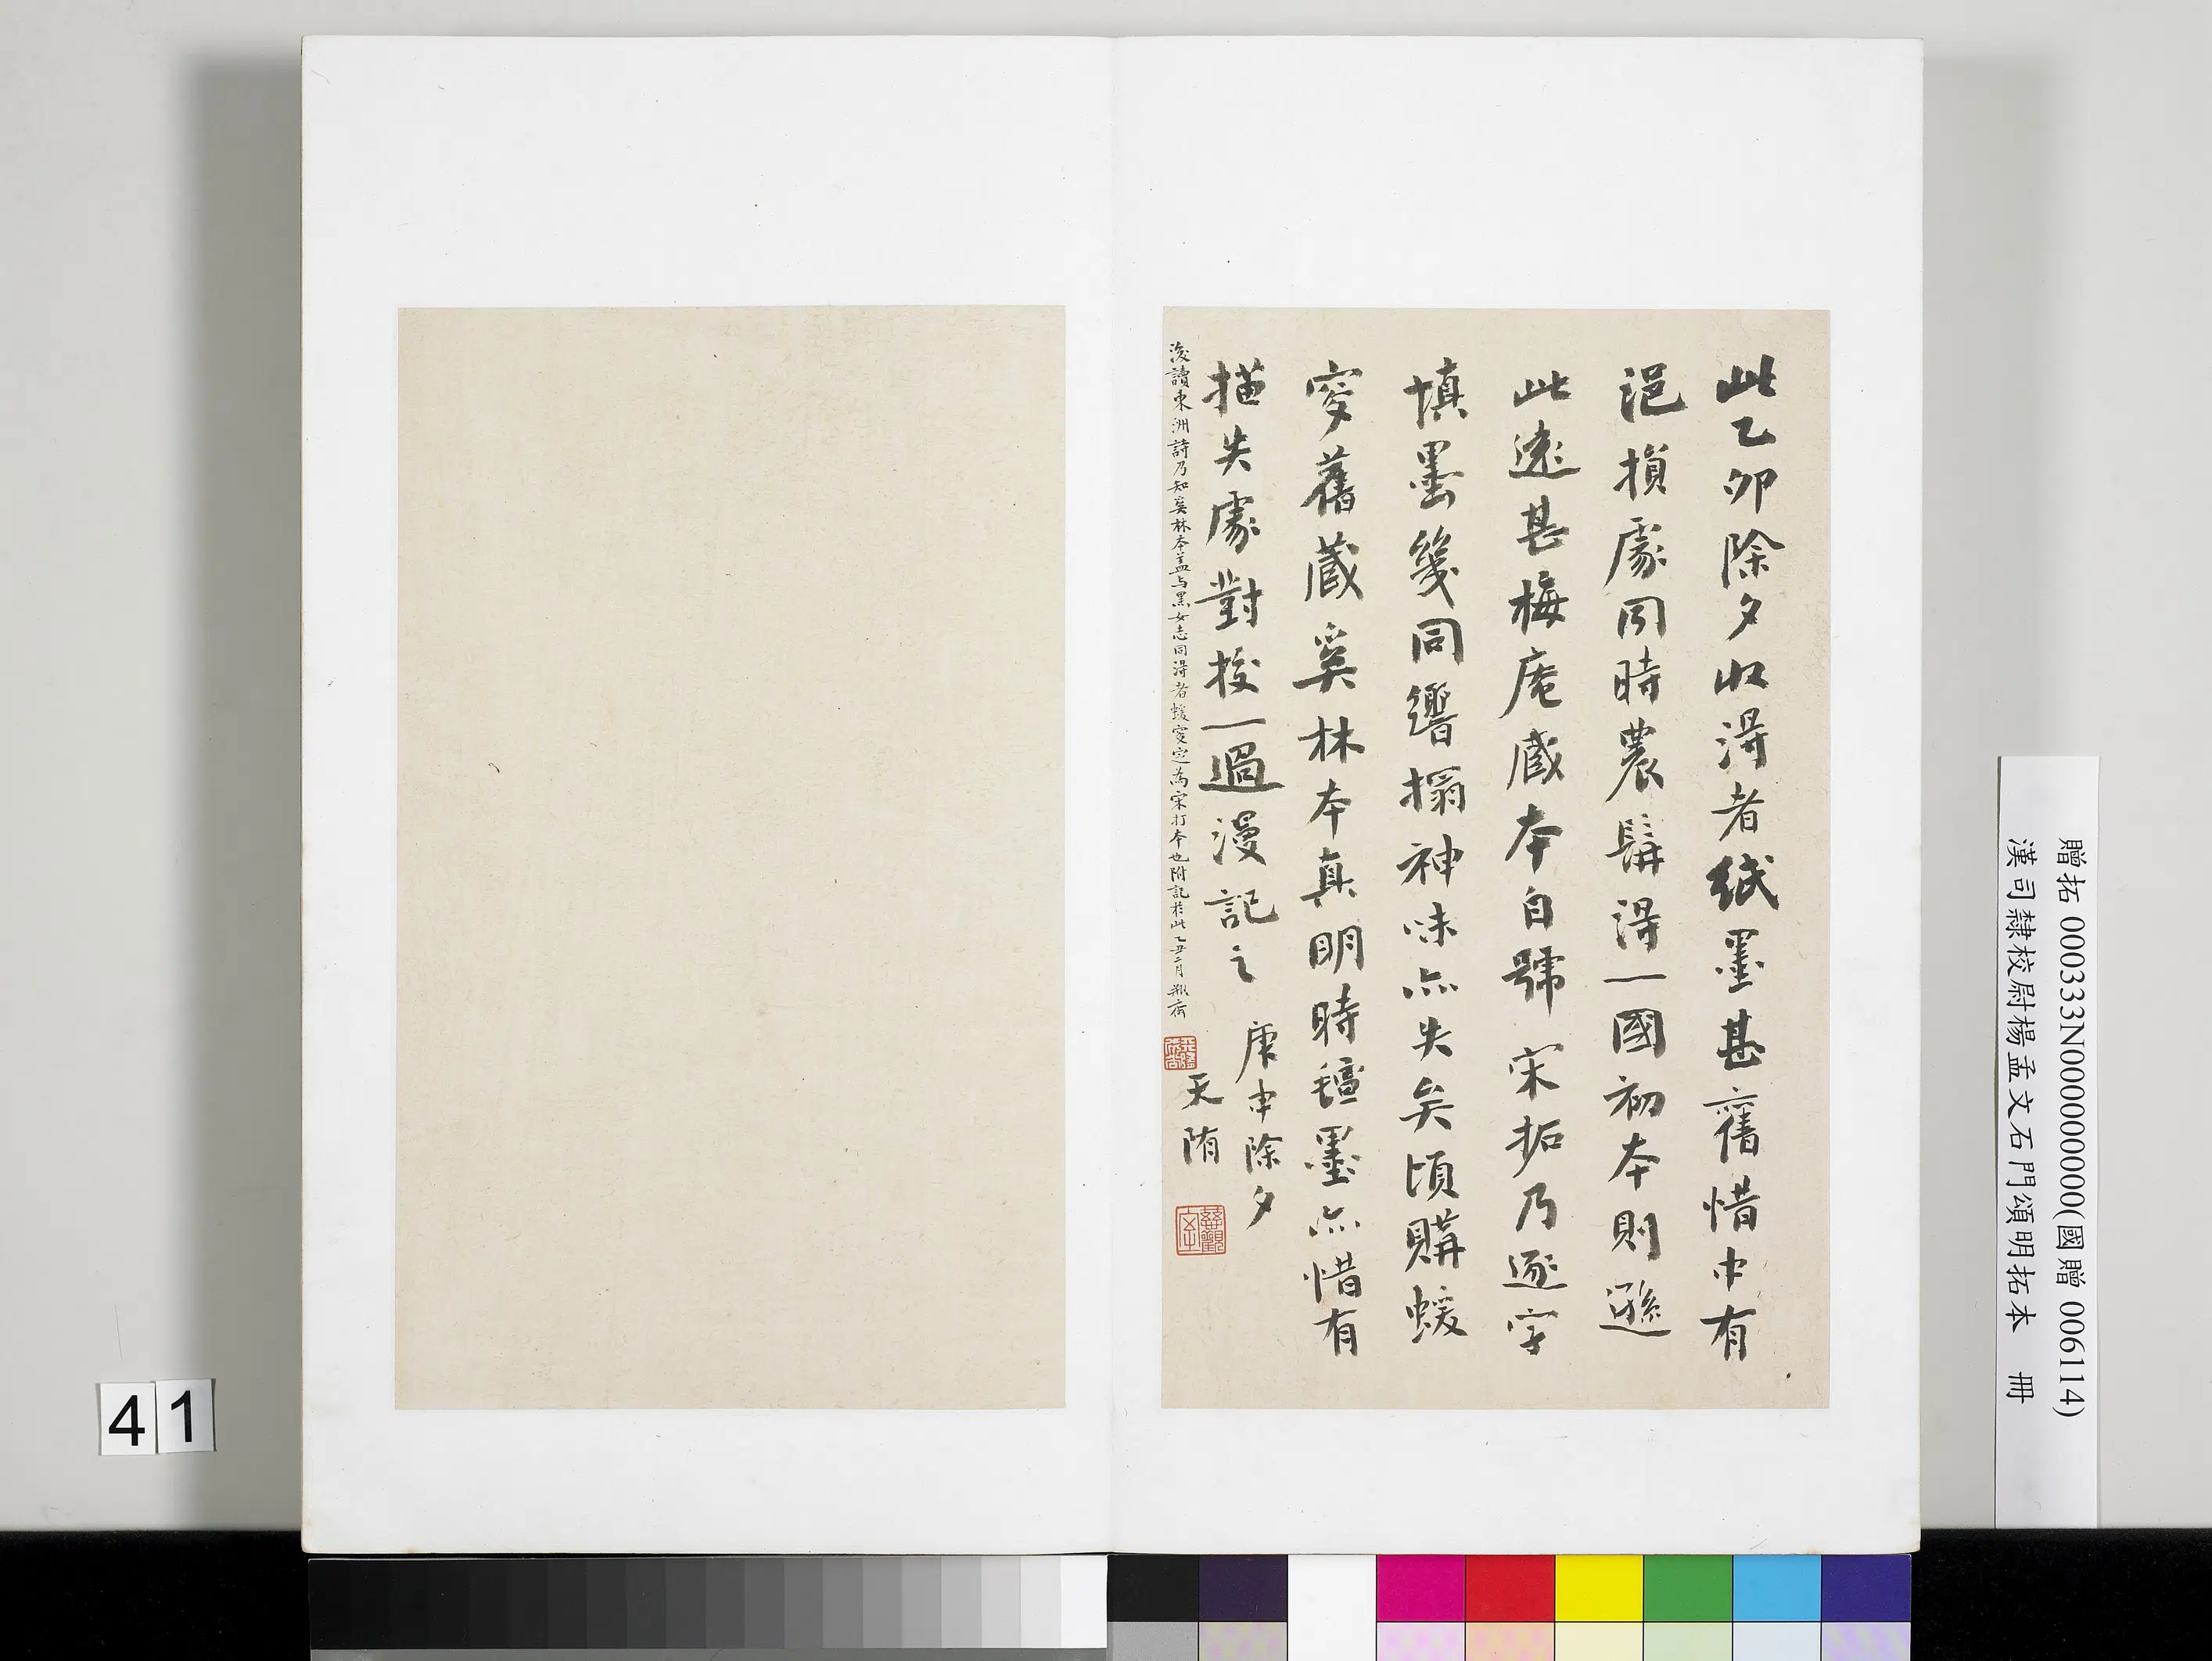 此乙卯除夕收得者紙墨甚舊惜中有
浥損處同時農髯得一國初本則遜
此遠甚梅庵藏本自號宋拓乃逐字
填墨幾同響搨神味亦失矣頃購蝯
叟舊藏奚林本真明時氊墨亦惜有
描失處對挍一過漫記之
庚申除夕
天隋
後讀東洲詩乃知奚林本盖与黑女志同淂者蝯叟定為宋打本也附記於此乙丑二月
贈拓 000333N000000000(國贈 006114)
漢司隸校尉楊孟文石門頌明拓本 冊
41